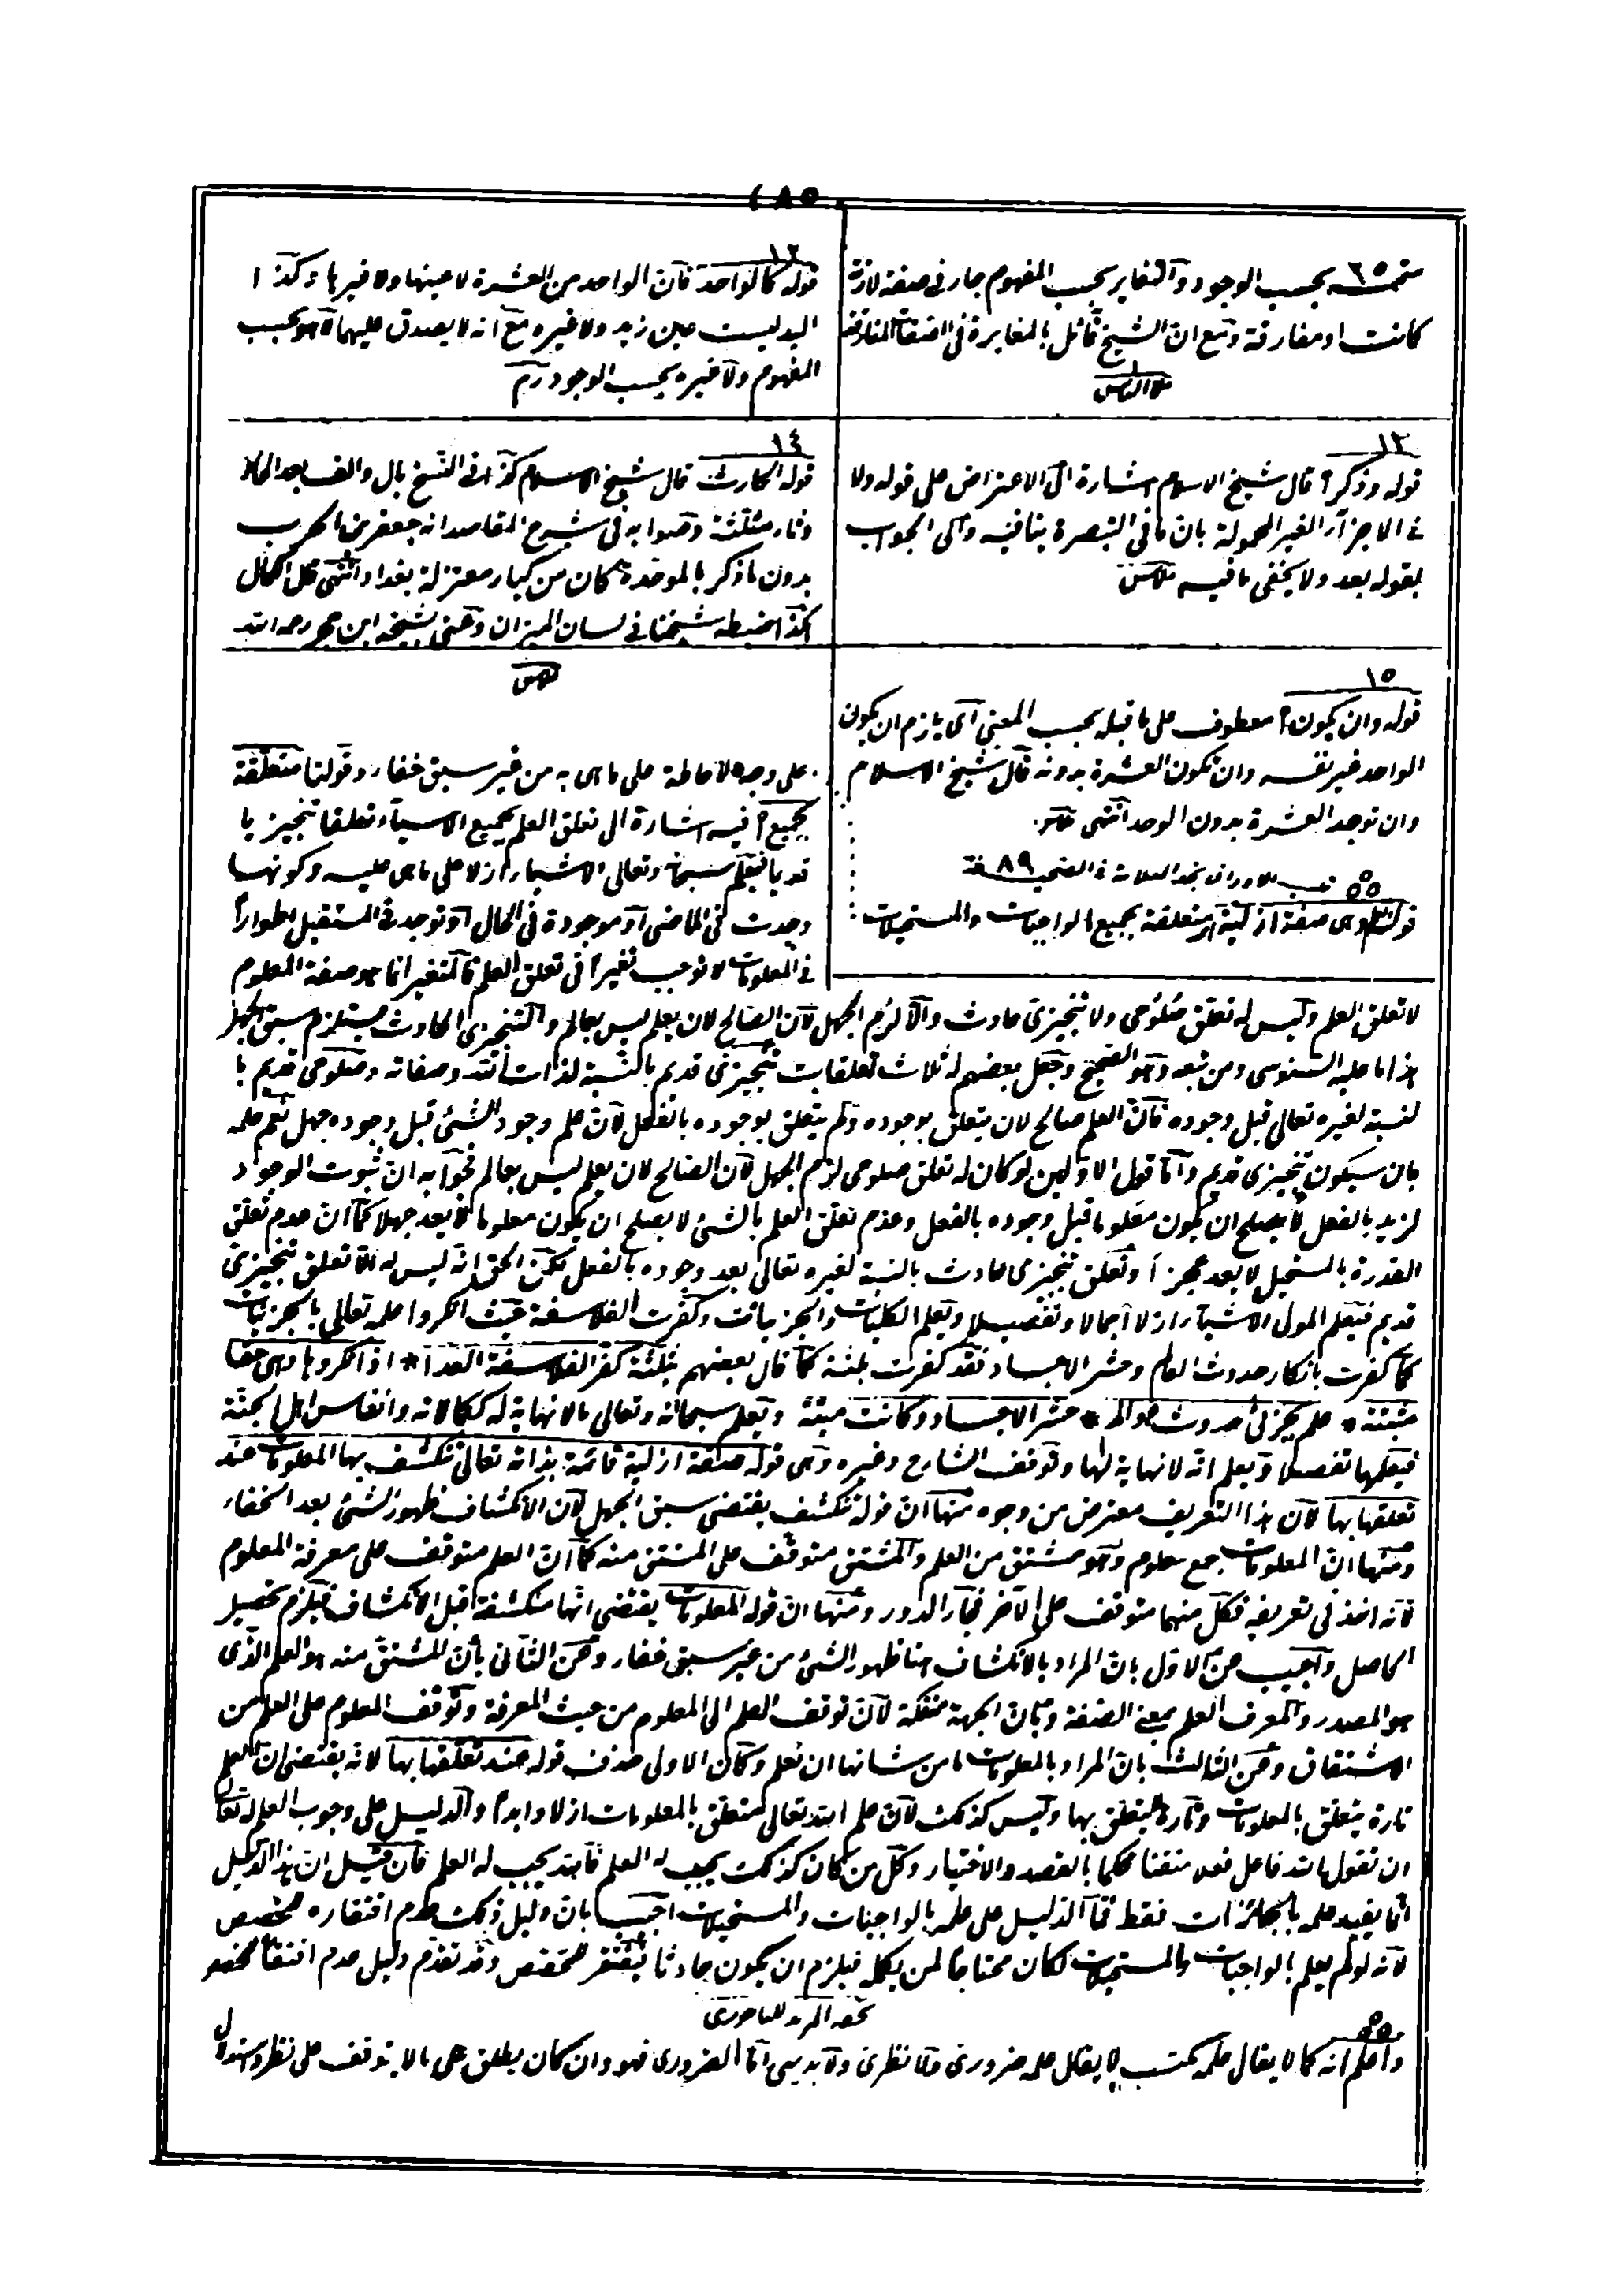 ٢٨٥
بحسب الوجود والتغاير بحسب المفهوم جار في صفة لازمة
كانت او مفارقة ومع ان الشيخ قائل بالمغايرة في الصفات المفارقة
ملا الياس
١٢
قوله وذكر ا قال شيخ الاسلام اشارة الى الاعتراض على قوله ولا
في الاجزاء الغير المحمولة بان ما في التبصرة ينافيه والى الجواب
بقوله بعد ولا يخفى ما فيه
١٥
قوله وان يكون ا معطوف على ما قبله بحسب المعنى اى يلزم ان يكون
الواحد غير نفسه وان تكون العشرة بدونه قال شيخ الاسلام
وان توجد العشرة بدون الواحد انتهى
الاوراق تجد العلامة في الصحيفة ٨٩
٥٥
قوله العلم وهى صفة ازلية متعلقة بجميع الواجبات والمستحيلات
١٣
قوله كالواحد فان الواحد من العشرة لا عينها ولا غيرها وكذا
اليد ليست عين زيد ولا غيره مع انه لا يصدق عليهما لا هو بحسب
المفهوم ولا غيره بحسب الوجود
١٤
قوله الحارث قال شيخ الاسلام كذا في النسخ بال والف بعد الحاء
وثاء مثلثة وصوابه في شرح المقاصد انه جعفر بن حرب
بدون ما ذكر بالموحدة كان من كبار معتزلة بغداد انتهى قال الكمال
كذا ضبطه شيخنا في لسان الميزان وعنى بشيخه ابن حجر رحمه الله
على وجه الاحاطة على ما هى به من غير سبق خفاء وقولنا متعلقة
بجميع ا فيه اشارة الى تعلق العلم بجميع الاشياء تعلقا تنجيزيا
قديما فيعلم سبحانه وتعالى الاشياء ازلا على ما هى عليه وكونها
وجدت في الماضى او موجودة في الحال او توجد في المستقبل اطوار
في المعلومات لا توجب تغيرا في تعلق العلم فالمتغير انما هو صفة المعلوم
لا تعلق العلم وليس له تعلق صلوحى ولا تنجيزى حادث والا لزم الجهل لان الصالح لان يعلم ليس بعالم والتنجيزى الحادث يستلزم سبق الجهل
هذا ما عليه السنوسى ومن تبعه وهو الصحيح وجعل بعضهم له ثلاث تعلقات تنجيزى قديم بالنسبة لذات الله وصفاته وصلوحى قديم با
لنسبة لغيره تعالى قبل وجوده فان العلم صالح لان يتعلق بوجوده ولم يتعلق بوجوده بالفعل لان علم وجود الشئ قبل وجوده جهل نعم علمه
بان سيكون تنجيزى قديم واما قول الاولين لو كان له تعلق صلوحى لزم الجهل لان الصالح لان يعلم ليس بعالم فجوابه ان ثبوت الوجود
لزيد بالفعل لا يصلح ان يكون معلوما قبل وجوده بالفعل وعدم تعلق العلم بالشئ لا يصلح ان يكون معلوما لا يعد جهلا كما ان عدم تعلق
القدرة بالمستحيل لا يعد عجزا وتعلق تنجيزى حادث بالنسبة لغيره تعالى بعد وجوده بالفعل لكن الحق انه ليس له الا تعلق تنجيزى
قديم فيعلم المولى الاشياء ازلا اجمالا وتفصيلا ويعلم الكليات والجزئيات وكفرت الفلاسفة حيث انكروا علمه تعالى بالجزئيات
كما كفرت بانكار حدوث العالم وحشر الاجساد فقد كفرت بثلثة كما قال بعضهم بثلثة كفر الفلاسفة العدا * اذ انكروها وهى حقا
مثبتة * علم بجزئى حدوث عوالم * حشر الاجساد وكانت ميتة ويعلم سبحانه وتعالى ما لا نهاية له ككمالاته وانفاس اهل الجنة
فيعلمها تفصيلا ويعلم انه لا نهاية لها وتوقف الشارح وغيره وهى قوله صفة ازلية قائمة بذاته تعالى تنكشف بها المعلومات عند
تعلقها بها لان هذا التعريف معترض من وجوه منها ان قوله تنكشف يقتضى سبق الجهل لان الانكشاف ظهور الشئ بعد الخفاء
ومنها ان المعلومات جمع معلوم وهو مشتق من العلم والمشتق متوقف على المشتق منه كما ان العلم متوقف على معرفة المعلوم
لانه اخذ في تعريفه فكل منهما متوقف على الآخر فجاء الدور ومنها ان قوله المعلومات يقتضى انها منكشفة قبل الانكشاف فيلزم تحصيل
الحاصل واجيب عن الاول بان المراد بالانكشاف هنا ظهور الشئ من غير سبق خفاء وعن الثانى بان المشتق منه هو العلم الذى
هو المصدر والمعرف العلم بمعنى الصفة وبان الجهة منفكة لان توقف العلم الى المعلوم من حيث المعرفة وتوقف المعلوم على العلم من
الاشتقاق وعن الثالث بان المراد بالمعلومات ما من شانها ان تعلم وكان الاولى حذف قوله عند تعلقها بها لانه يقتضى ان العلم
تارة يتعلق بالمعلومات وتارة لا يتعلق بها وليس كذلك لان علم الله تعالى متعلق بالمعلومات ازلا وابدا والدليل على وجوب العلم له تعالى
ان تقول الله فاعل فعلا متقنا محكما بالقصد والاختيار وكل من كان كذلك يجب له العلم فالله يجب له العلم فان قيل ان هذا الدليل
انما يفيد علمه بالجائزات فقط فما الدليل على علمه بالواجبات والمستحيلات اجيب بان دليل ذلك عدم افتقاره لمخصص
لانه لو لم يعلم بالواجبات والمستحيلات لكان محتاجا لمن يكمله فيلزم ان يكون حادثا فيفتقر لمخصص وقد تقدم دليل عدم افتقاره لمخصص
تحفة المريد للباجورى
٥٥
واعلم انه كما لا يقال علمه مكتسب لا يقال علمه ضرورى ولا نظرى ولا بديهى اما الضرورى فهو وان كان يطلق على ما لا يتوقف على نظر واستدلال